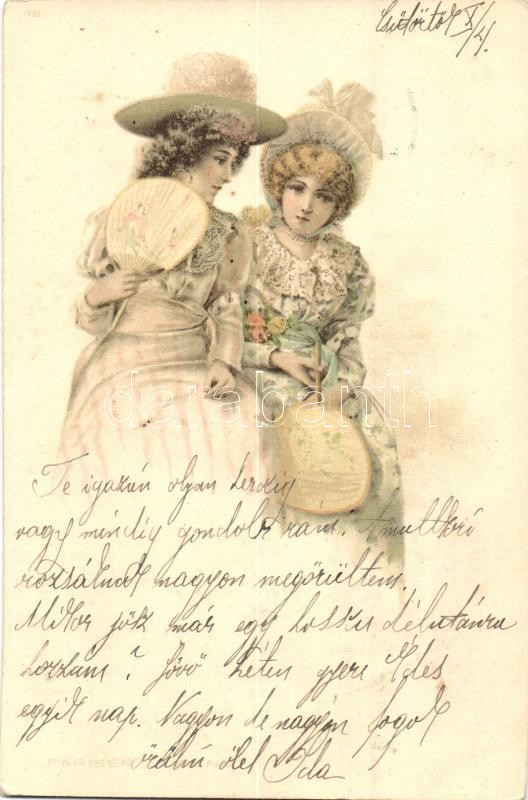 Csütörtök X/4.
Te igazán olyan herzig
vagy mindig gondolsz rám. A multkori
rózsáknak nagyon megörültem.
Mikor jösz már egy hosszu délutánra
hozzám? Jövő héten gyere Édes
egyik nap. Nagyon de nagyon fogok
örülni ölel Ida
PARISER
darabanth